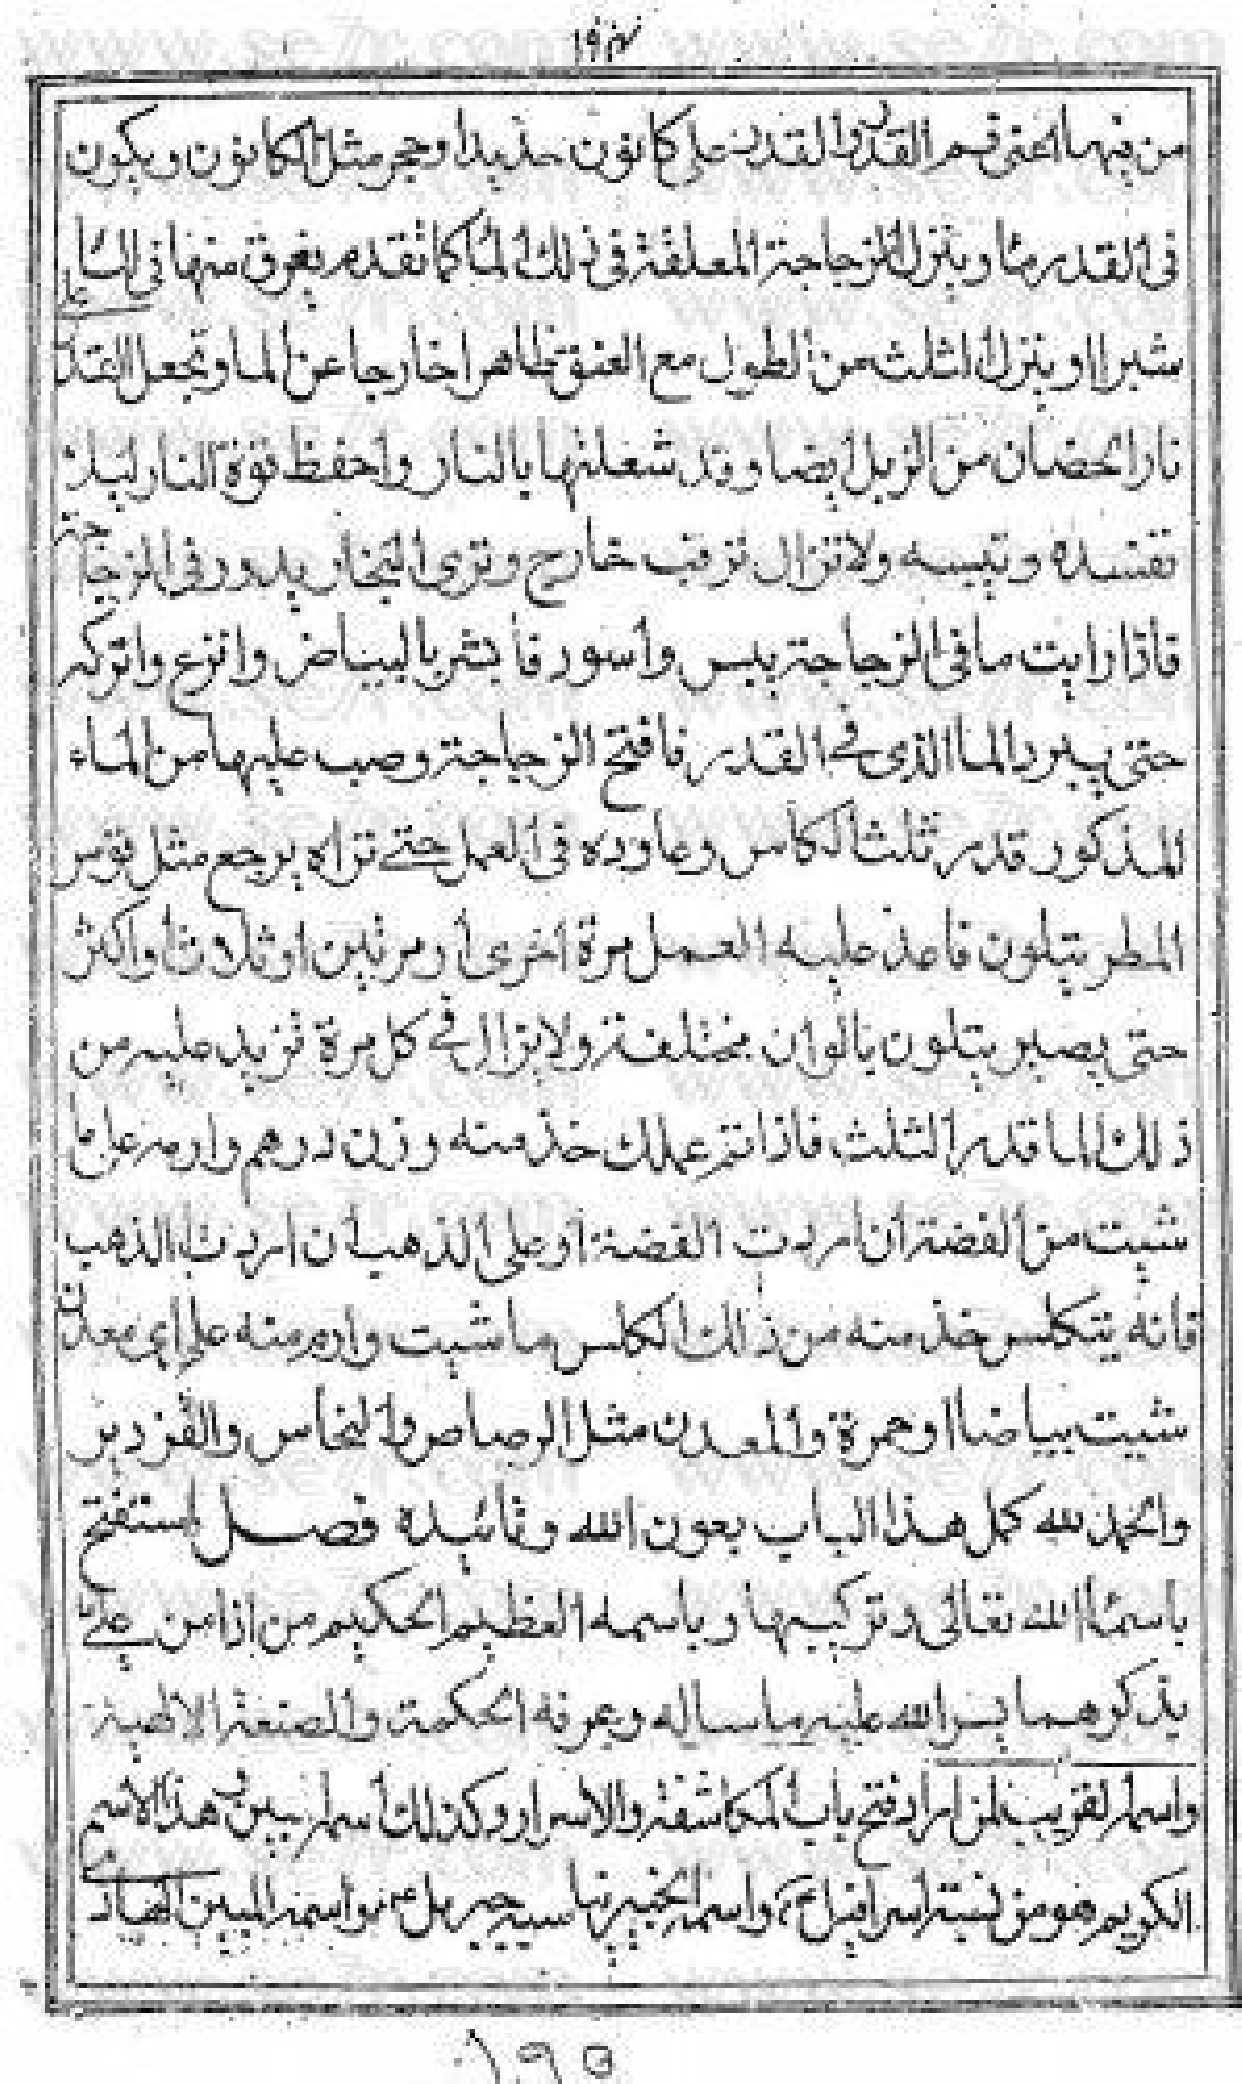 من فمها الحق فم القدر والقدر على كانون حديد او حجر مثل الكانون ويكون
في القدر ما وينزل الزجاجة المعلقة في ذلك الما كما تقدم يغرق منها في الما
شبرا او ينزل الثلث من الطول مع العنق ظاهرا خارجا عن الما وتجعل القدر
نارا لحضان من الزبل ايضا وقد شعلتها بالنار واحفظ قوة النار ليلا
تفسده وتيبسه ولا تزال ترقب خارج وترى البخار يدور في الزجاجة
فاذا رايت ما في الزجاجة يبس واسود فابشر بالبياض وانزع واتركه
حتى يبرد الما الذي في القدر فافتح الزجاجة وصب عليها من الماء
المذكور قدر ثلث الكاس وعاوده في العمل حتى تراه يرجع مثل قوس
المطر يتلون فاعد عليه العمل مرة اخرى او مرتين او ثلاثا واكثر
حتى يصير يتلون بالوان مختلفة ولا يزال في كل مرة تزيد عليه من
ذلك الما قدر الثلث فاذا تم عملك خذ منه وزن درهم وارمه على ما
شيت من الفضة ان اردت الفضة او على الذهب ان اردت الذهب
فانه يتكلس خذ منه من ذلك الكلس ما شيت وارم منه على اي معدن
شيت بياضا او حمرة والمعدن مثل الرصاص والنحاس والقزدير
والحمد لله كمل هذا الباب بعون الله وتائيده فصل استفتح
باسما الله تعالى وتركيبها وباسمه العظيم الحكيم من اذا من على
يذكرهما يسر الله عليه ما ساله وعرفه الحكمة والصنعة الالهية
لمن اراد فتح باب المكاشفة والاسرار وكذلك هذا الاسم
الكريم هو من اسرافيل واسمه الخبير جبريل واسمه المبين
١٩٥